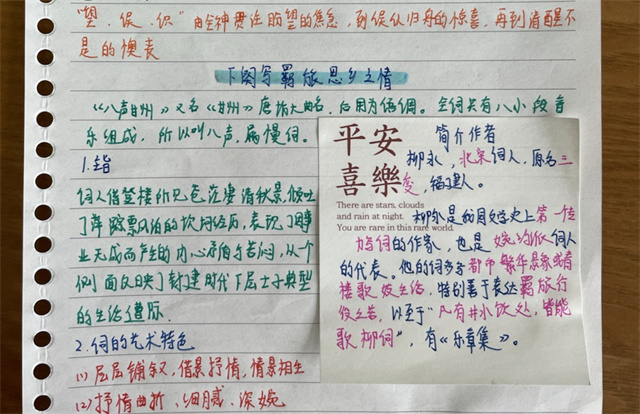 "望、误、识"由全神贯注眺望的焦急,到误认归舟的惊喜,再到清醒不
是的懊丧
下阕写羁旅思乡之情
《八声甘州》又名《甘州》唐教坊大曲名,后用为词调。全词共有八小段音
乐组成,所以叫八声,属慢词。
1.主旨
词人借登楼所见苍茫凄清秋景,倾吐
了萍踪飘泊的坎坷经历,表现了因事
业无成而产生的内心矛盾与苦闷,从一个
侧面反映了封建时代下层士子典型
的生活遭际.
2.词的艺术特色
(1)层层铺叙,借景抒情,情景相生
(2)抒情曲折、细腻、深婉
平安
喜樂
There are stars, clouds
and rain at night.
You are rare in this rare world.
简介作者
柳永,北宋词人,原名三
变,福建人。
柳永是中国文学史上第一位
词的作家,也是婉约派词人
的代表。他的词多写都市繁华景象
楼歌妓生活,特别善于表达羁旅行
役之苦,以至于"凡有井水饮处,皆能
歌柳词",有《乐章集》。